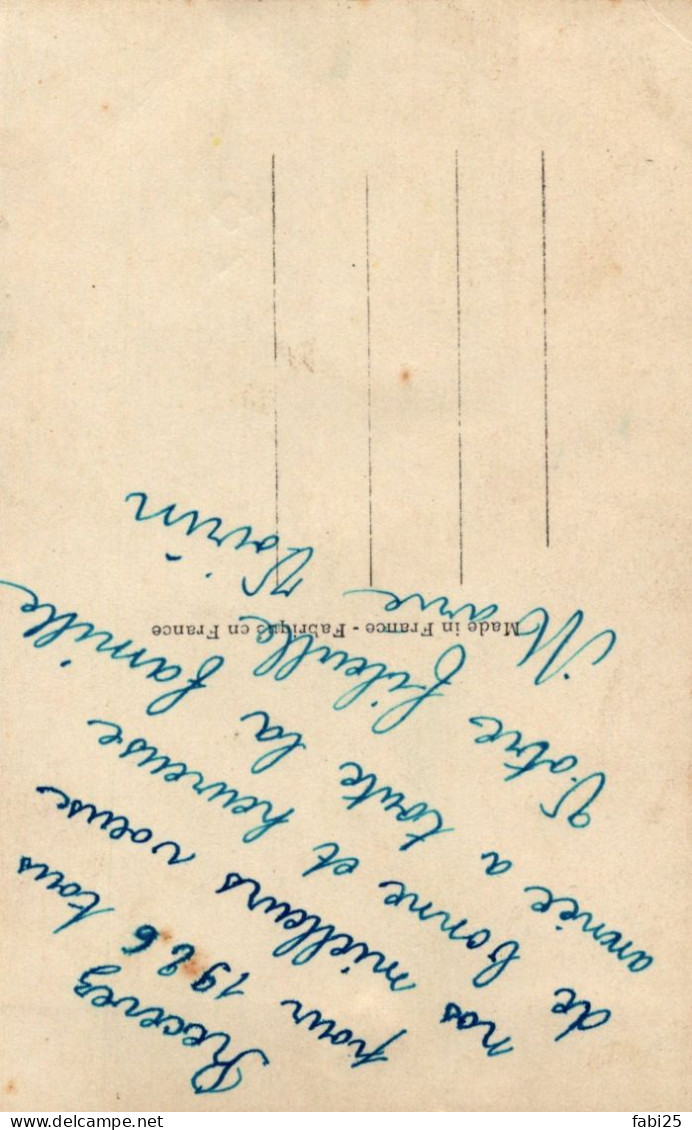 Recevez
pour 1926 tous
nos meilleurs voeuse
de bonne et heureuse
année a toute la famille
Votre fileulle
Marie Voirin
Made in France - Fabriqué en France
www.delcampe.net
fabi25